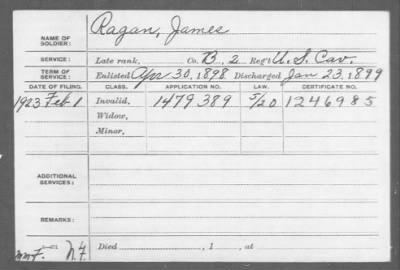 NAME OF SOLDIER: Ragan, James
SERVICE: Late rank, Co. B, 2 Reg't U.S. Cav.
TERM OF SERVICE: Enlisted Apr 30, 1898 Discharged Jan 23, 1899
DATE OF FILING. CLASS. APPLICATION NO. LAW. CERTIFICATE NO.
1923 Feb 1 Invalid, 1479389 5/20 1246985
Widow,
Minor,
ADDITIONAL SERVICES:
REMARKS:
Died , 1 , at